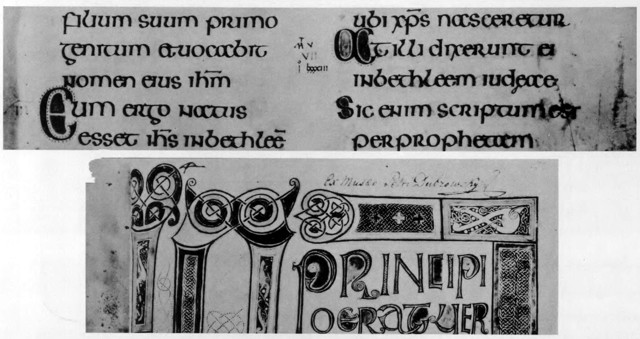 filium suum primo
genitum etuocabit
nomen eius ihm̄
Cum ergo natus
esset ih̄s inbethleē
VII
ubi xp̄s nasceretur
At illi dixerunt ei
inbethleem iudeae
Sic enim scriptum est
perprophetam
Ex Museo Petri Dubrowsky
PRINCIPI
OERATUER